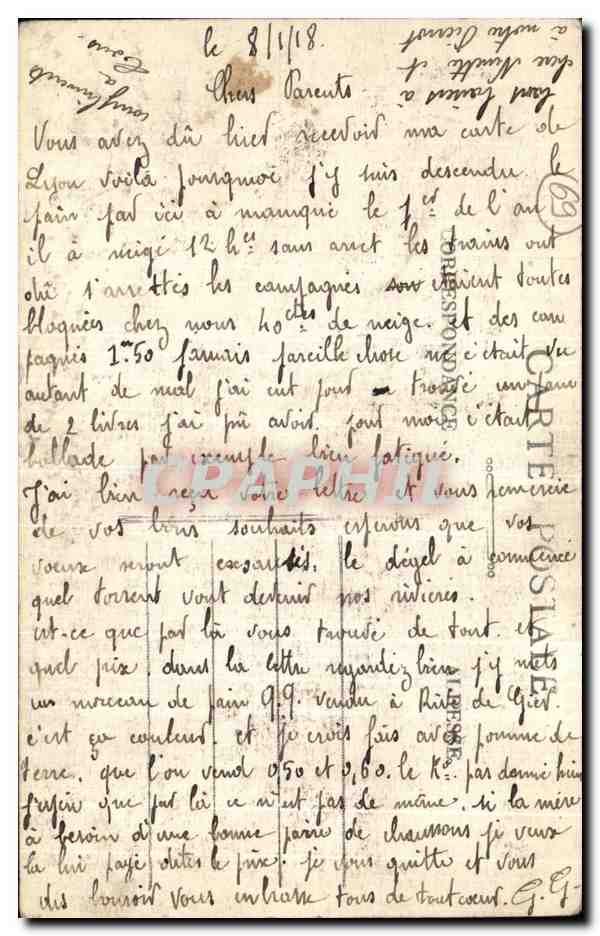 le 8/1/18.
Chers Parents
Vous avez dû hier recevoir ma carte de
Lyon voila pourquoi j'y suis descendu le
pain par ici à manqué le 1er de l'an
il à neigé 12 hes sans arret les trains ont
dû s'arrettés les campagnes etaient toutes
bloquées chez nous 40 ctes de neige. et des cam
pagnes 1m50 jamais pareille chose ne c'était vu
autant de mal j'ai eut pour trouvé un pain
de 2 livres j'ai pû avoir. pour moi c'était
ballade par exemple bien fatigué.
J'ai bien reçu votre lettre et vous remercie
de vos bons souhaits esperons que vos
voeux seront exsausés. le dégel à commencé
quel torrent vont devenir nos rivieres.
est-ce que par là vous trouvé de tout. et
quel prix. dans la lettre regardez bien j'y mets
un morceau de pain G.G. vendu à Rive de Gier.
c'est ça couleur. et je crois fais avec pomme de
terre. que l'on vend 0,50 et 0,60. le Ko. pas donné hein
j'espère que par là ce n'est pas de même. si la mère
à besoin d'une bonne paire de chaussons je veux
la lui payé dites le prix. je vous quitte et vous
dis bonsoir vous embrasse tous de tout coeur. G. G.
bons baisers à
chere Ninette et
à notre Pierrot
compliments
a
tous.
69
CARTE POSTALE
CORRESPONDANCE
ADRESSE
CPAPHIL